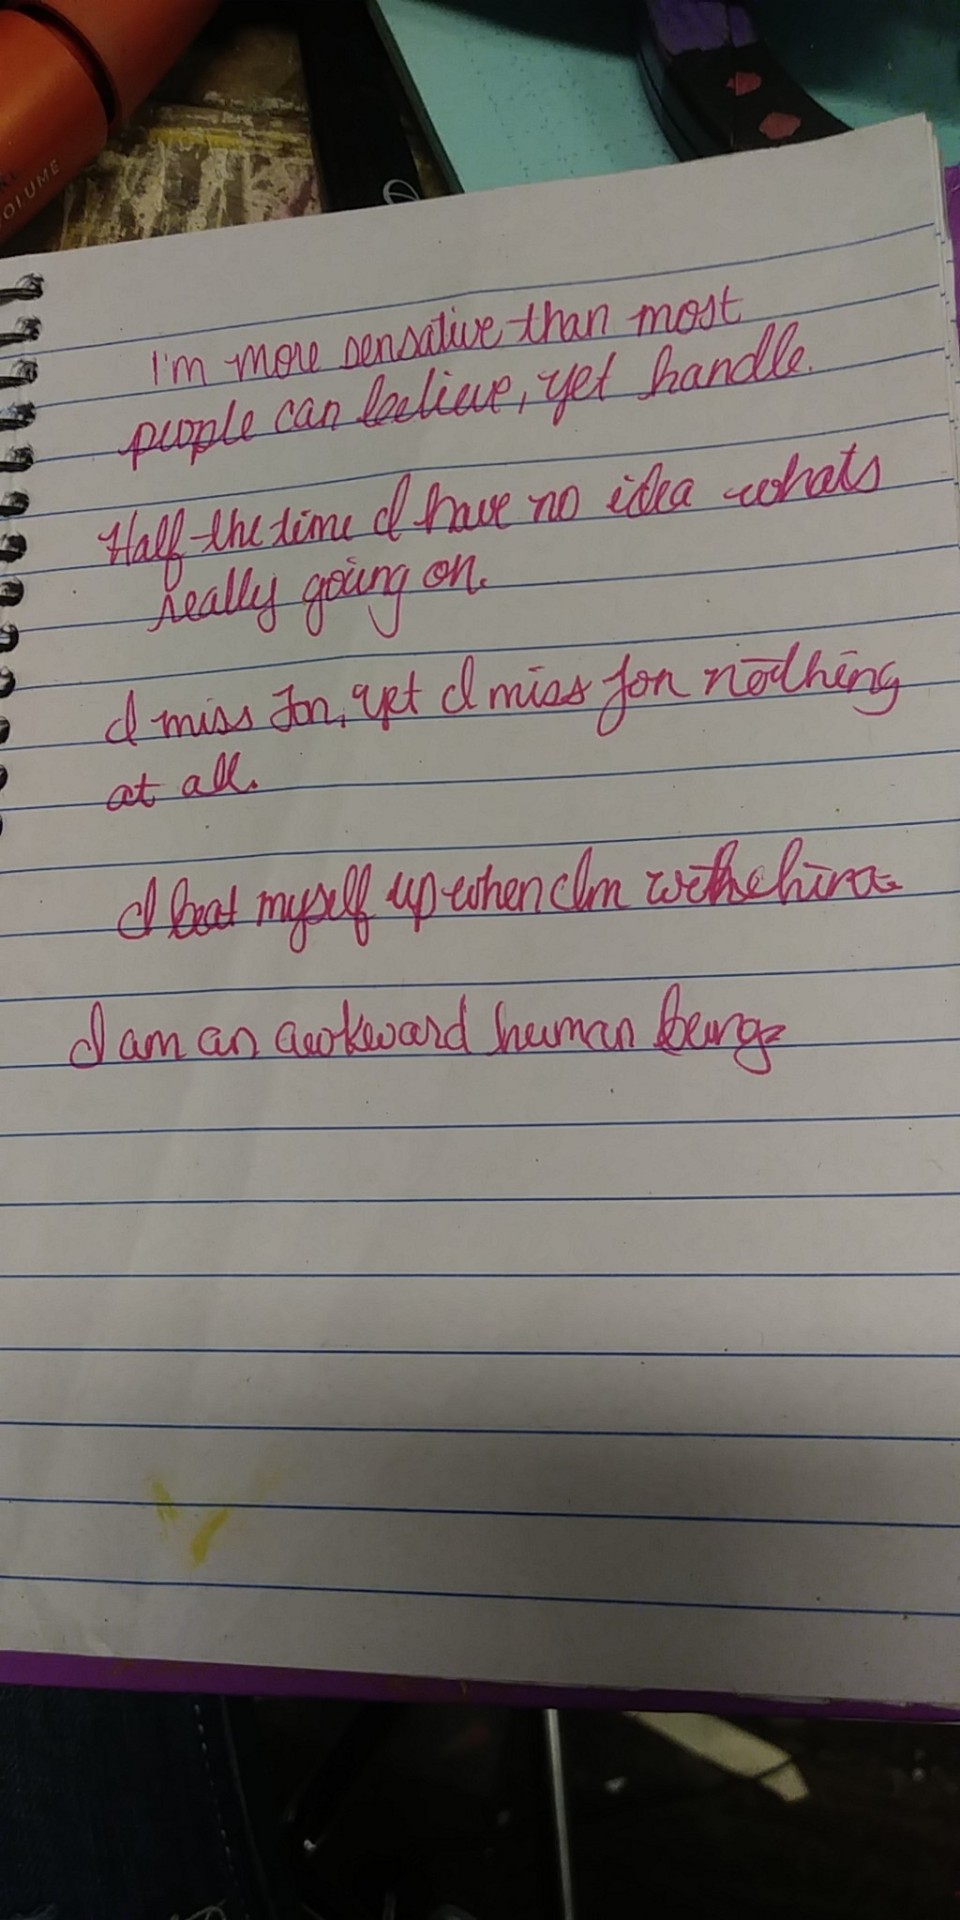 VOLUME
I'm more sensative than most
people can believe, yet handle.
Half the time I have no idea whats
really going on.
I miss Jon, yet I miss Jon nothing
at all.
I beat myself up when I'm with him
I am an awkward human being